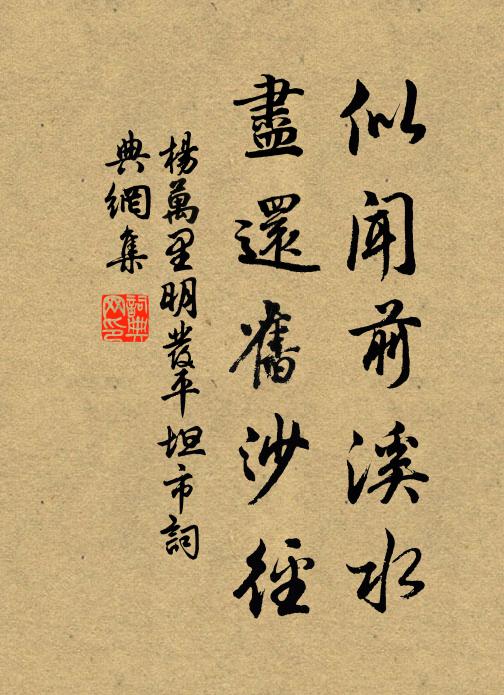 似聞前溪水
盡還舊沙徑
楊萬里明發平坦市詞
典網集
詞典
网印